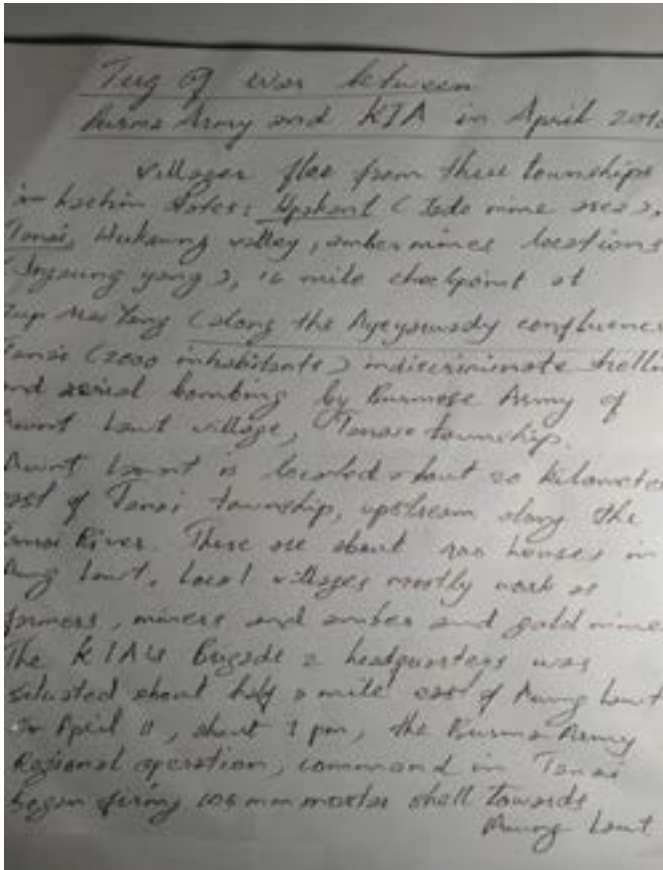 Tug of war between
Burma Army and KIA in April
Villager flee from three townships
in Kachin States: Hpakant (Jade mine area),
Tanai, Hukawng valley, amber mines locations
yang), 16 mile checkpoint at
Yang (along the Ayeyawady confluence
Tanai (2000 inhabitants) indiscriminate
aerial bombing by Burmese Army of
Lawt village, Tanai township.
Lawt is located about 20 kilometer
of Tanai township, upstream along the
River. There are about houses in
Lawt. Local villages mostly work as
farmers, miners and amber and gold mine
The KIA's Brigade 2 headquarters was
situated about half a mile east of Awng Lawt
April 11, about 3 pm, the Burma Army
Regional operation, command in Tanai
began firing 105 mm mortar shell towards
Awng Lawt